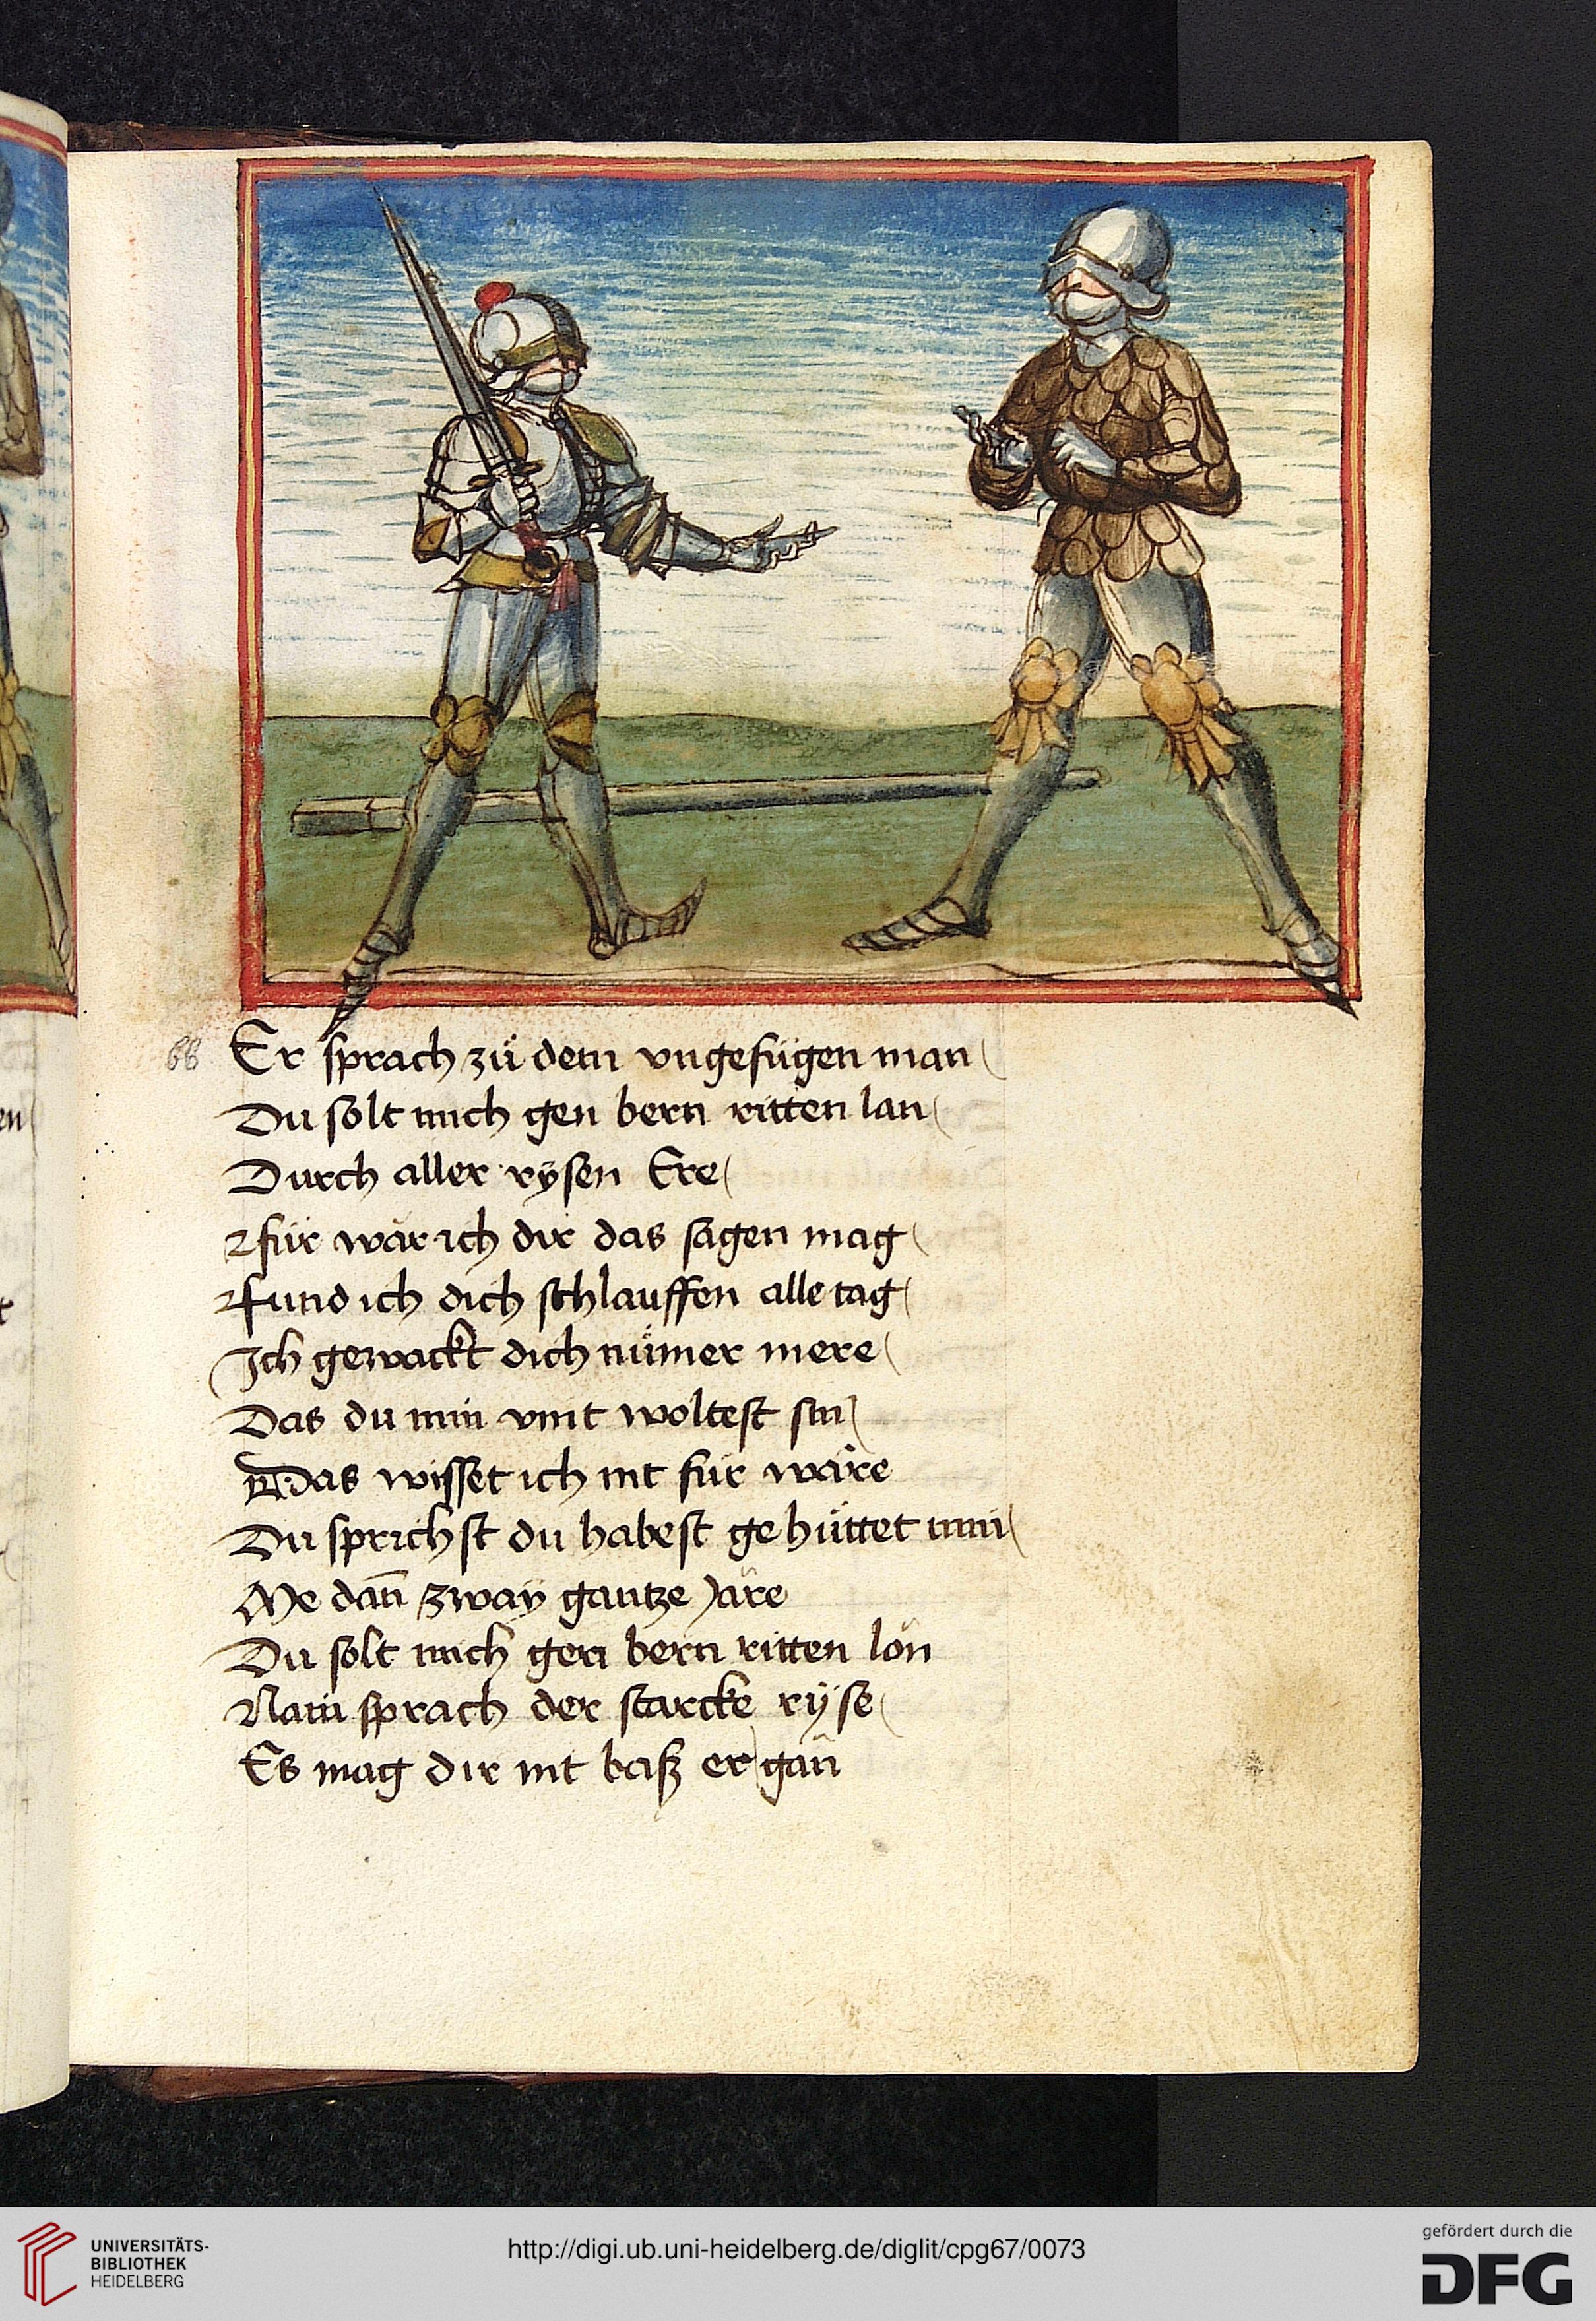 66
Er sprach zů dem vngefügen man
Du solt mich gen bern ritten lan
Durch aller rÿsen Ere
für wär ich dir das sagen mag
fund ich dich schlauffen alle tag
Ich gewackt dich nümer mere
Das du min vint woltest sin
Das wisset ich nit für wäre
Du sprichst du habest gehüttet min
Me dan̄ zway gantze Järe
Du solt mich gen bern ritten lön
Nain sprach der starcke rÿse
Es mag dir nit baß er gän
en
UNIVERSITÄTS-
BIBLIOTHEK
HEIDELBERG
http://digi.ub.uni-heidelberg.de/diglit/cpg67/0073
gefördert durch die
DFG